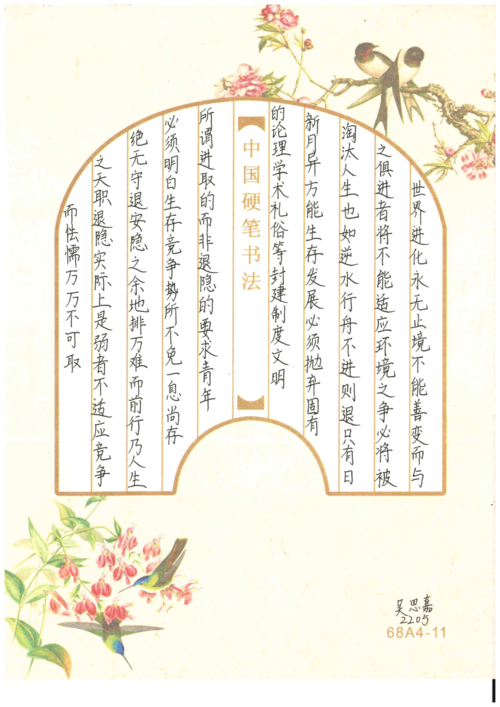 世界进化永无止境不能善变而与
之俱进者将不能适应环境之争必将被
淘汰人生也如逆水行舟不进则退只有日
新月异方能生存发展必须抛弃固有
的论理学术礼俗等封建制度文明
中国硬笔书法
所谓进取的而非退隐的要求青年
必须明白生存竞争势所不免一息尚存
绝无守退安隐之余地排万难而前行乃人生
之天职退隐实际上是弱者不适应竞争
而怯懦万万不可取
吴思嘉
2205
68A4-11